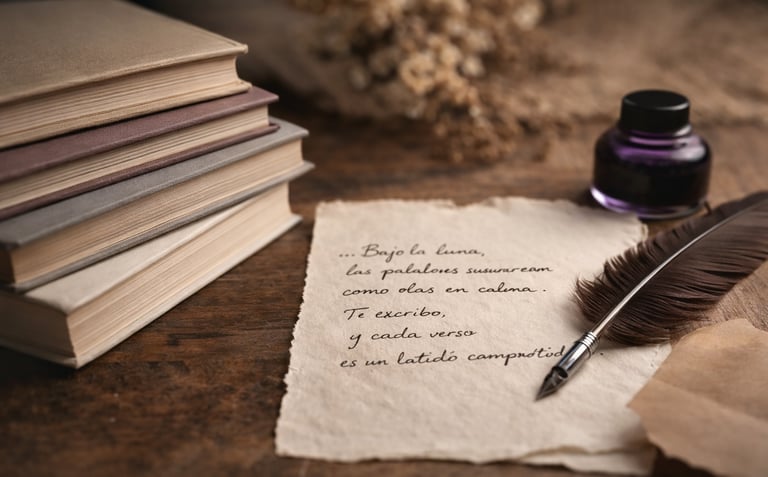 ... Bajo la luna,
las palaloves susuwaream
como olas en calma.
Te excribo,
y cada verso
es un latidó